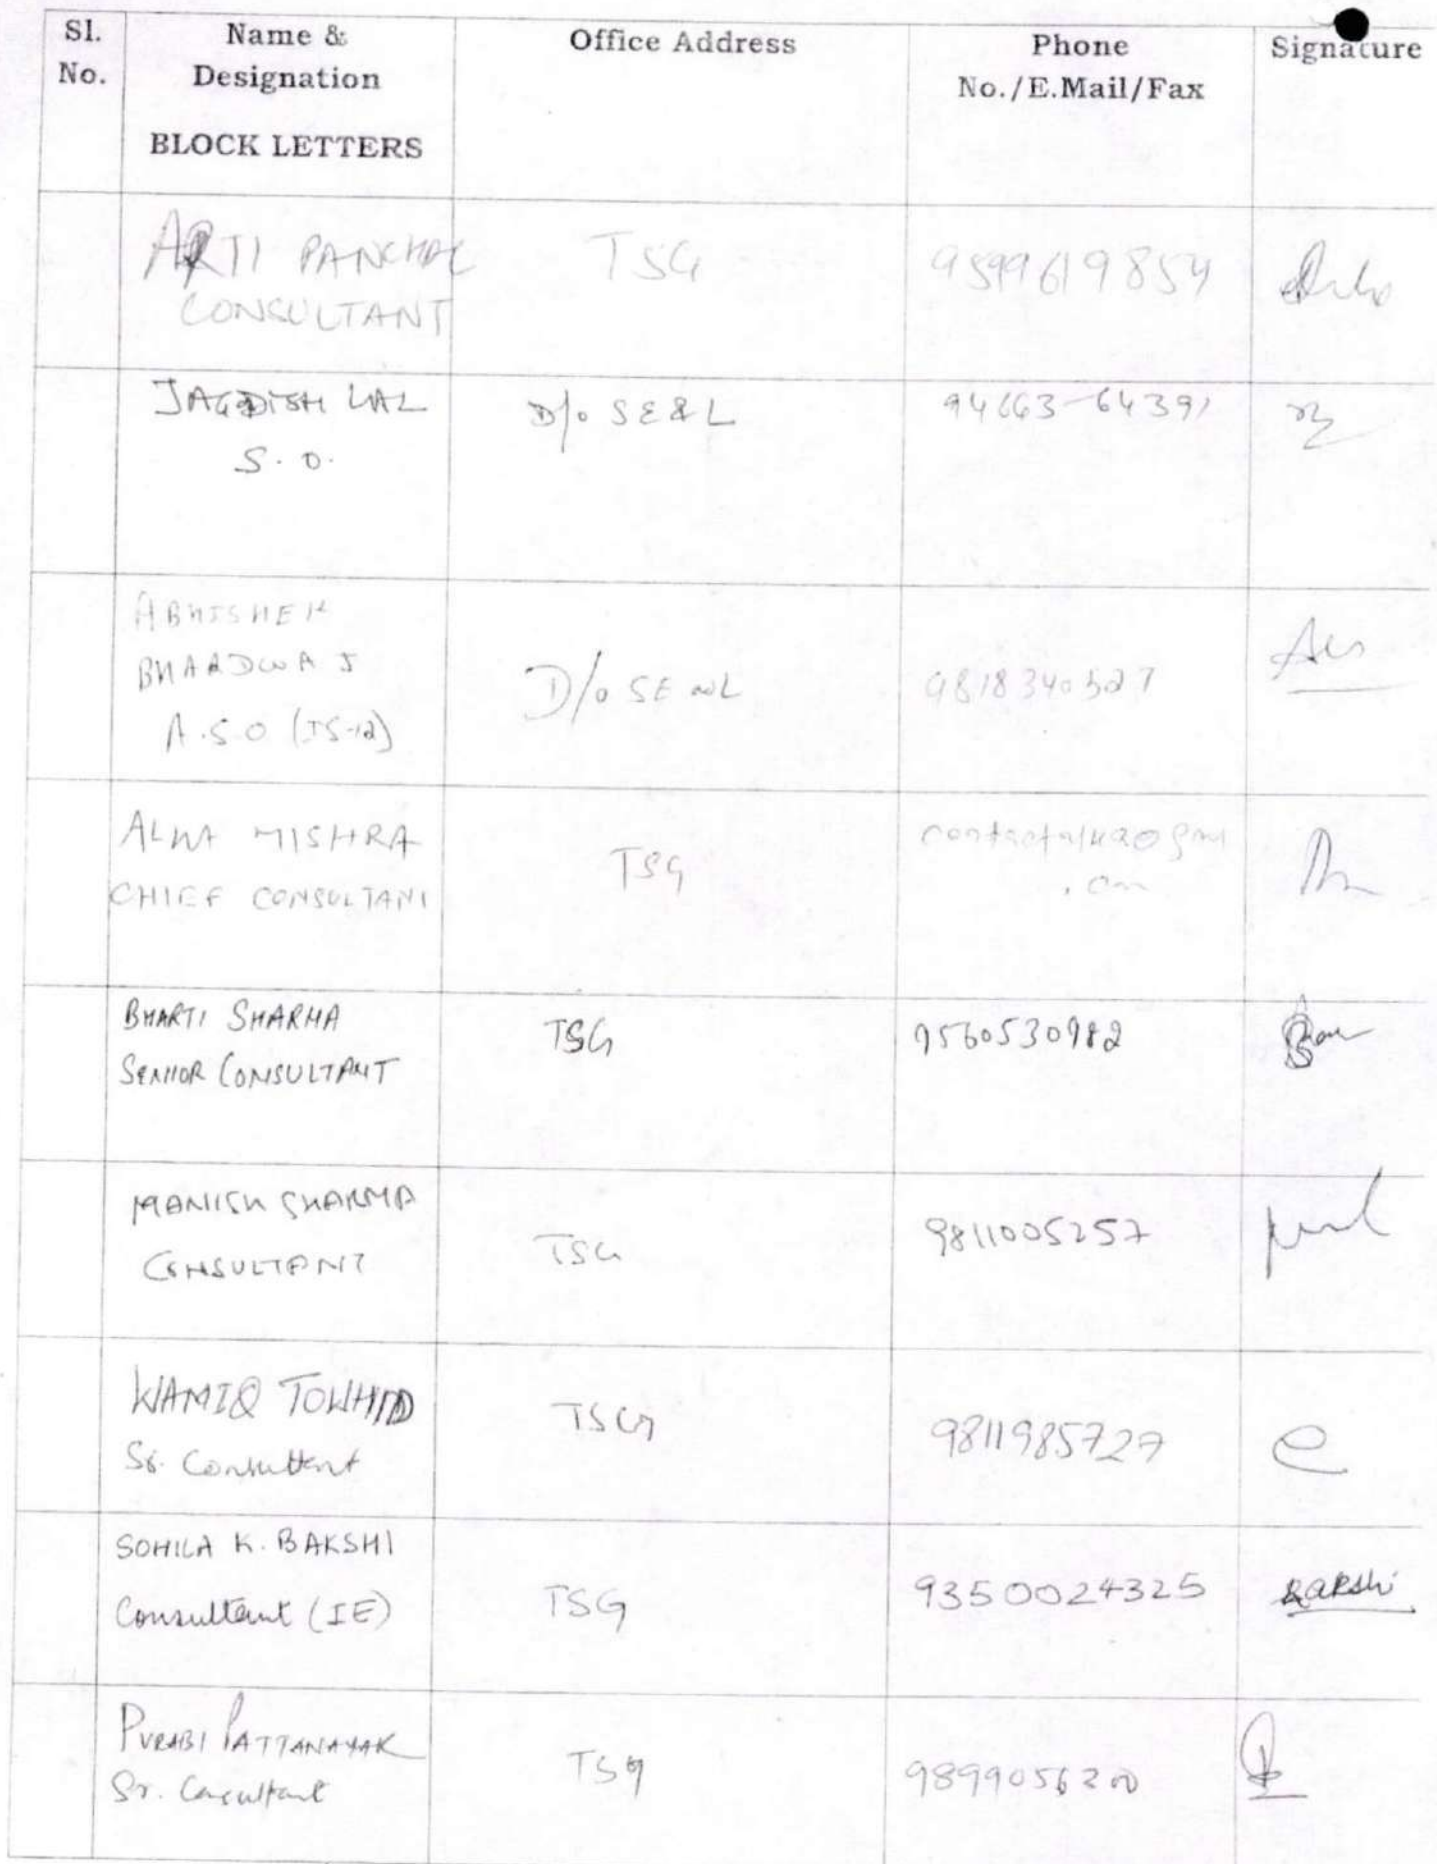 Sl. No.
Name & Designation
BLOCK LETTERS
Office Address
Phone No./E.Mail/Fax
Signature
ARTI PANCHAL
CONSULTANT
TSG
9599619854
JAGDISH LAL
S.O.
D/o SE&L
94663-64391
ABHISHEK
BHARDWAJ
A.S.O (IS-12)
D/o SE
9818340527
ALKA MISHRA
CHIEF CONSULTANT
TSG
BHARTI SHARMA
SENIOR CONSULTANT
TSG
9560530982
MANISH SHARMA
CONSULTANT
TSG
9811005257
WAMIQ TOWHID
Sr. Consultant
TSG
9811985727
SOHILA K. BAKSHI
Consultant (IE)
TSG
9350024325
Bakshi
PURABI PATTANAYAK
Sr. Consultant
TSG